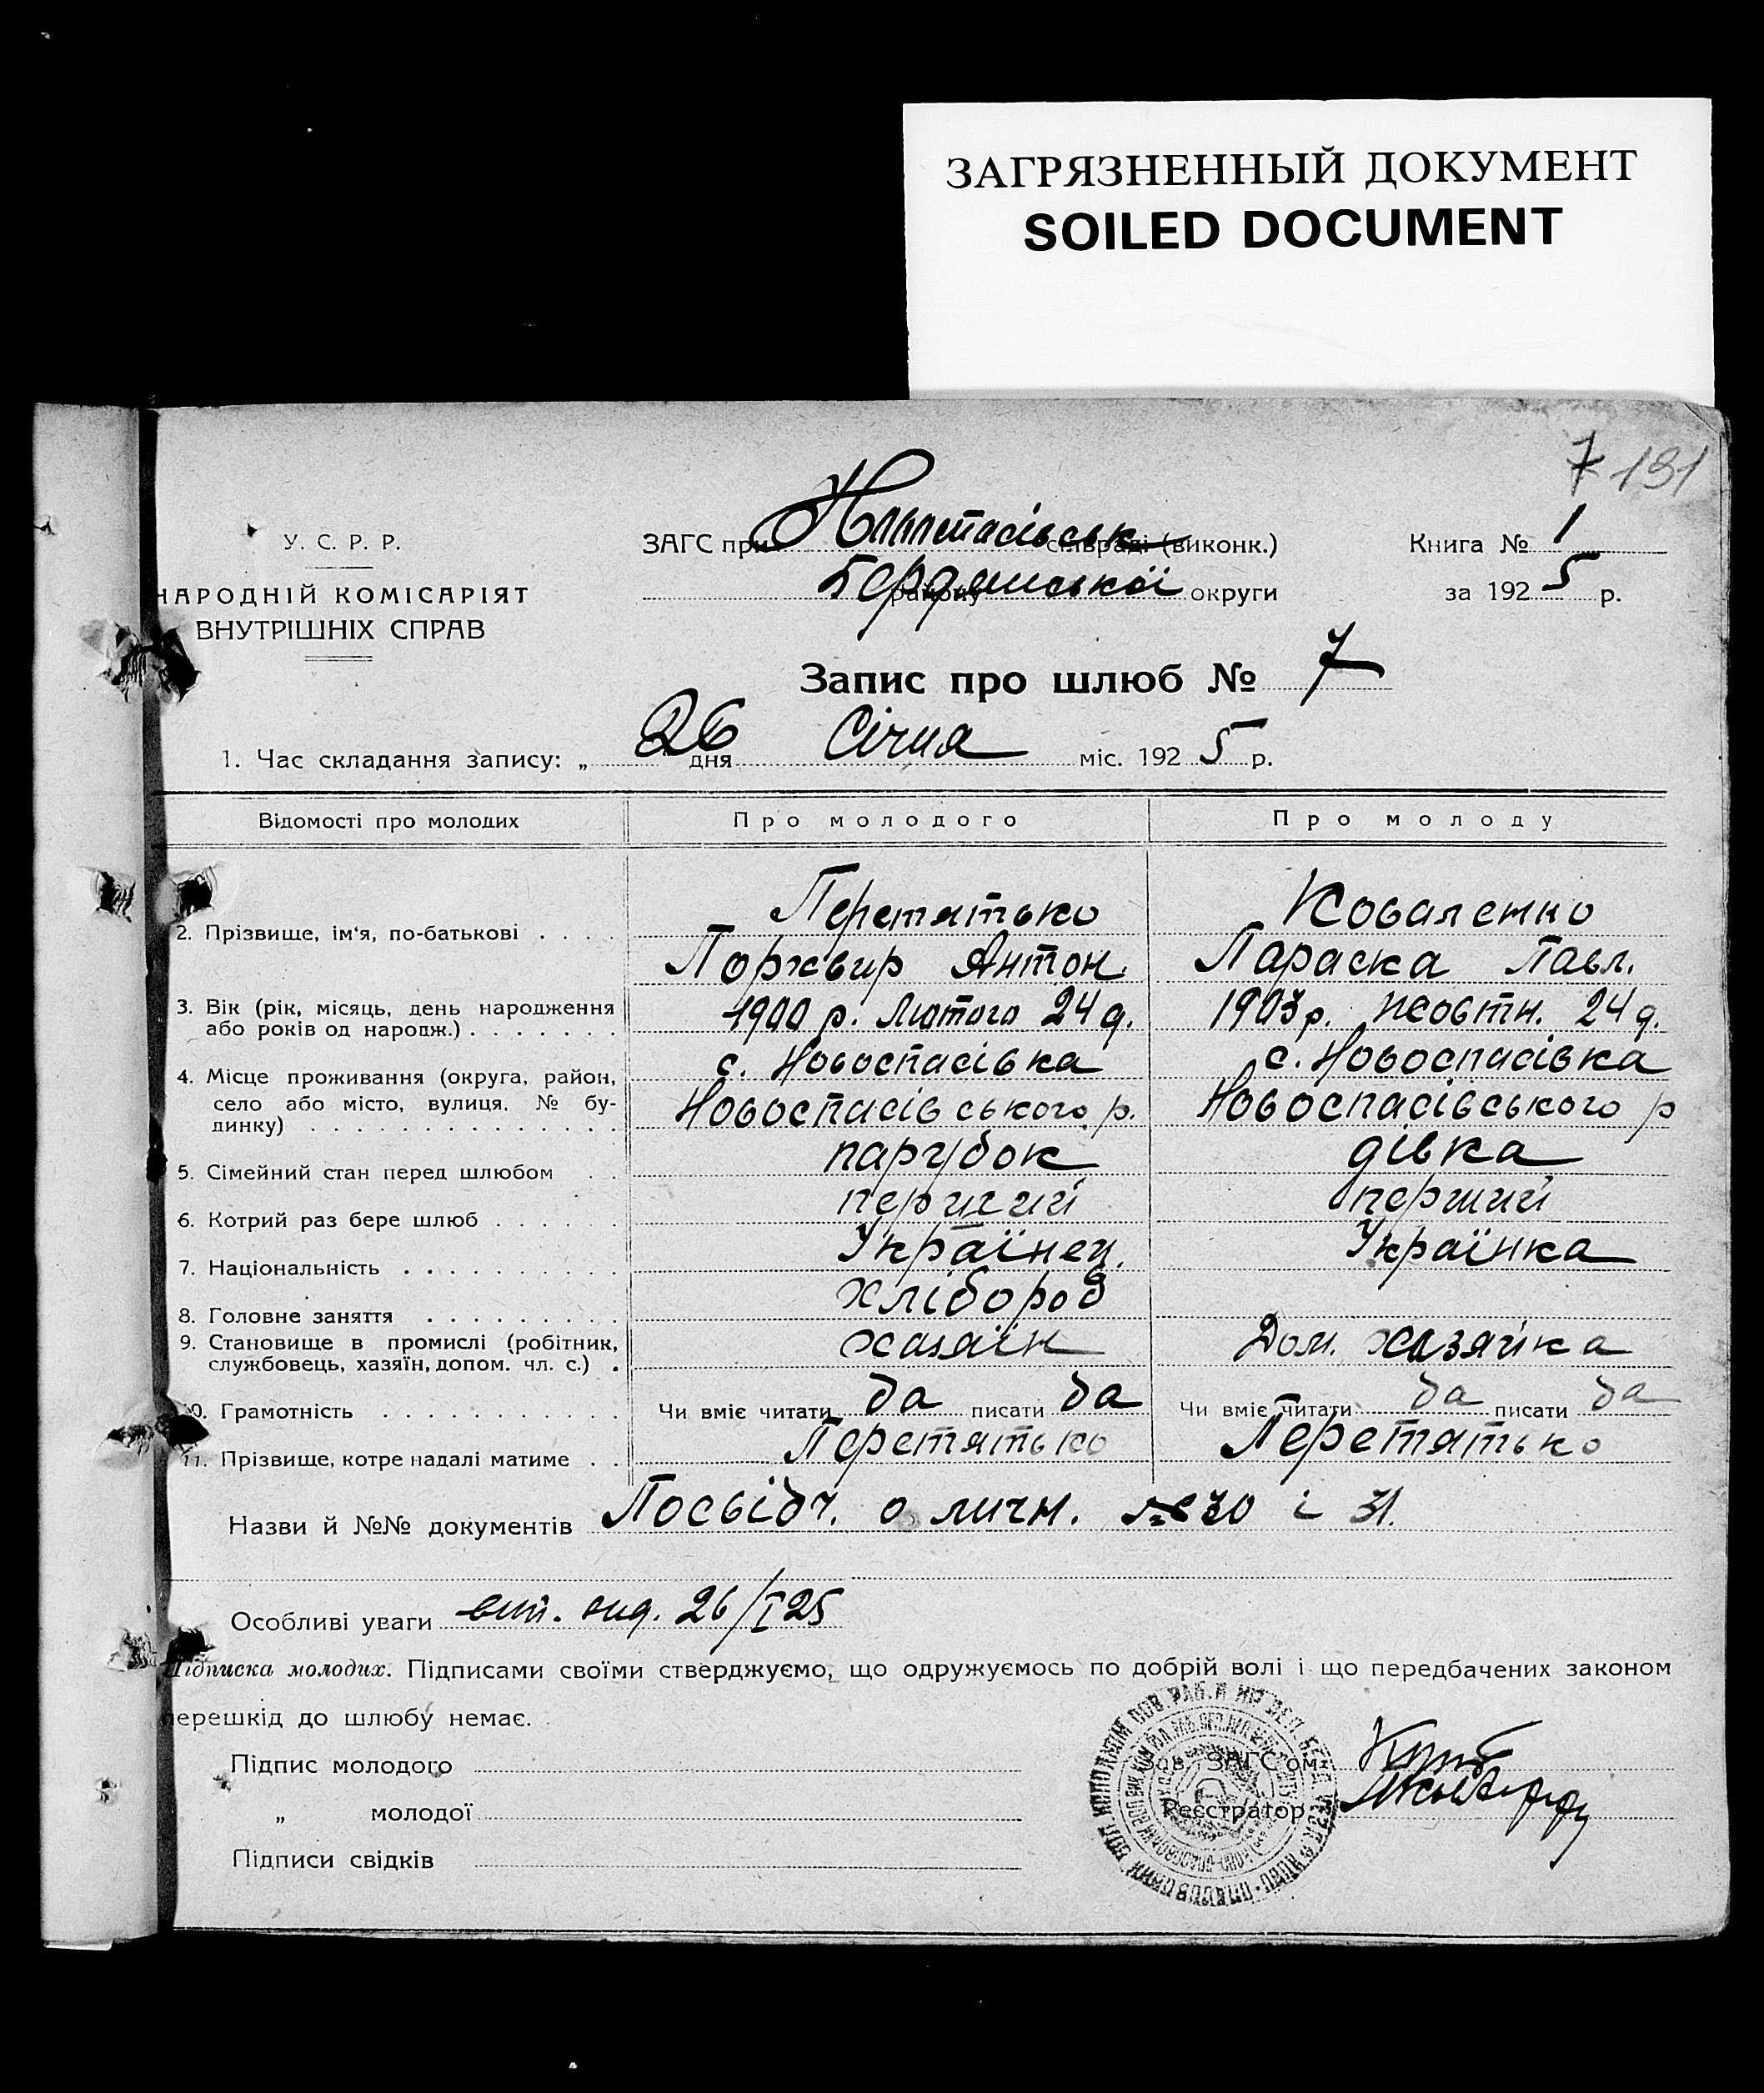 ЗАГРЯЗНЕННЫЙ ДОКУМЕНТ
SOILED DOCUMENT
7 191
У. С. Р. Р.
НАРОДНІЙ КОМІСАРІЯТ
ВНУТРІШНІХ СПРАВ
ЗАГС при сільраді (виконк.)
району Бердянської округи
Книга № 1
за 1925 р.
Запис про шлюб № 7
1. Час складання запису: „ 26 дня Січня міс. 1925 р.
Відомості про молодих Про молодого Про молоду
2. Прізвище, ім'я, по-батькові . . . . Перетятько Коваленко
Порхвир Антон. Параска Павл.
3. Вік (рік, місяць, день народження
або років од народж.) . . . . . . . 1900 р. Лютого 24 д. 1903 р. Жовтн. 24 д.
4. Місце проживання (округа, район,
село або місто, вулиця, № бу-
динку) . . . . . . . . . . . . . .
с. Новоспасівка с. Новоспасівка
Новоспасівського р. Новоспасівського р
5. Сімейний стан перед шлюбом . . парубок дівка
6. Котрий раз бере шлюб . . . . . . перший перший
7. Національність . . . . . . . . . . Українец. Українка
8. Головне заняття . . . . . . . . . хлібороб
9. Становище в промислі (робітник,
службовець, хазяїн, допом. чл. с.) . хазяїн Дом. хазяйка
0. Грамотність . . . . . . . . . . . Чи вміє читати да писати да Чи вміє читати да писати да
11. Прізвище, котре надалі матиме . . Перетятько Перетятько
Назви й №№ документів Посвідч. о личн. № 30 і 31.
Особливі уваги 26/I 25
Підписка молодих. Підписами своїми стверджуємо, що одружуємось по добрій волі і що передбачених законом
перешкід до шлюбу немає.
Підпис молодого
„ молодої
Підписи свідків
Зав. ЗАГС'ом
Реєстратор